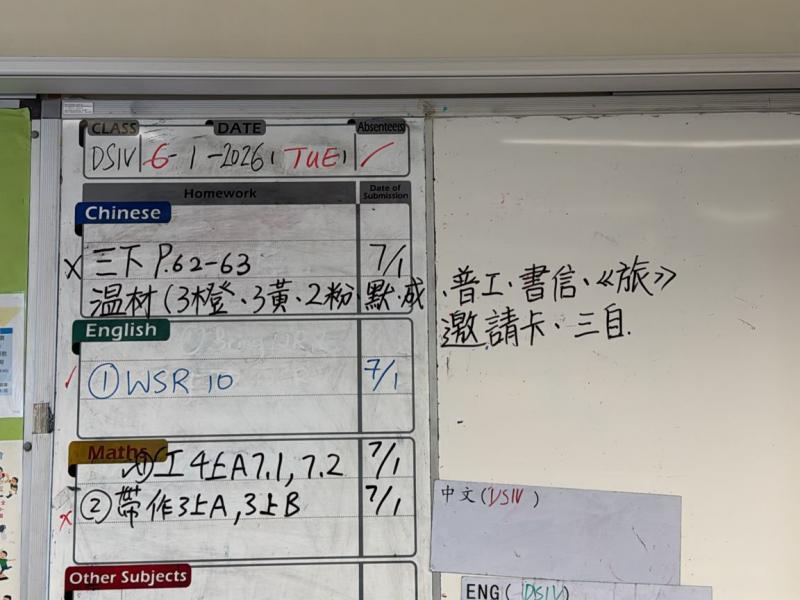 CLASS DATE Absentee(s)
DSIV 6-1-2026 (TUE) ✓
Homework Date of Submission
Chinese
X 三下 P.62-63 7/1
温材(3橙、3黃、2粉、默、成、普工、書信、《旅》
邀請卡、三自.
English
✓ ① WSR 10 7/1
Maths
① 工4上A7.1, 7.2 7/1
x ② 帶作3上A, 3上B 7/1
Other Subjects
中文(DSIV)
ENG(DSIV)